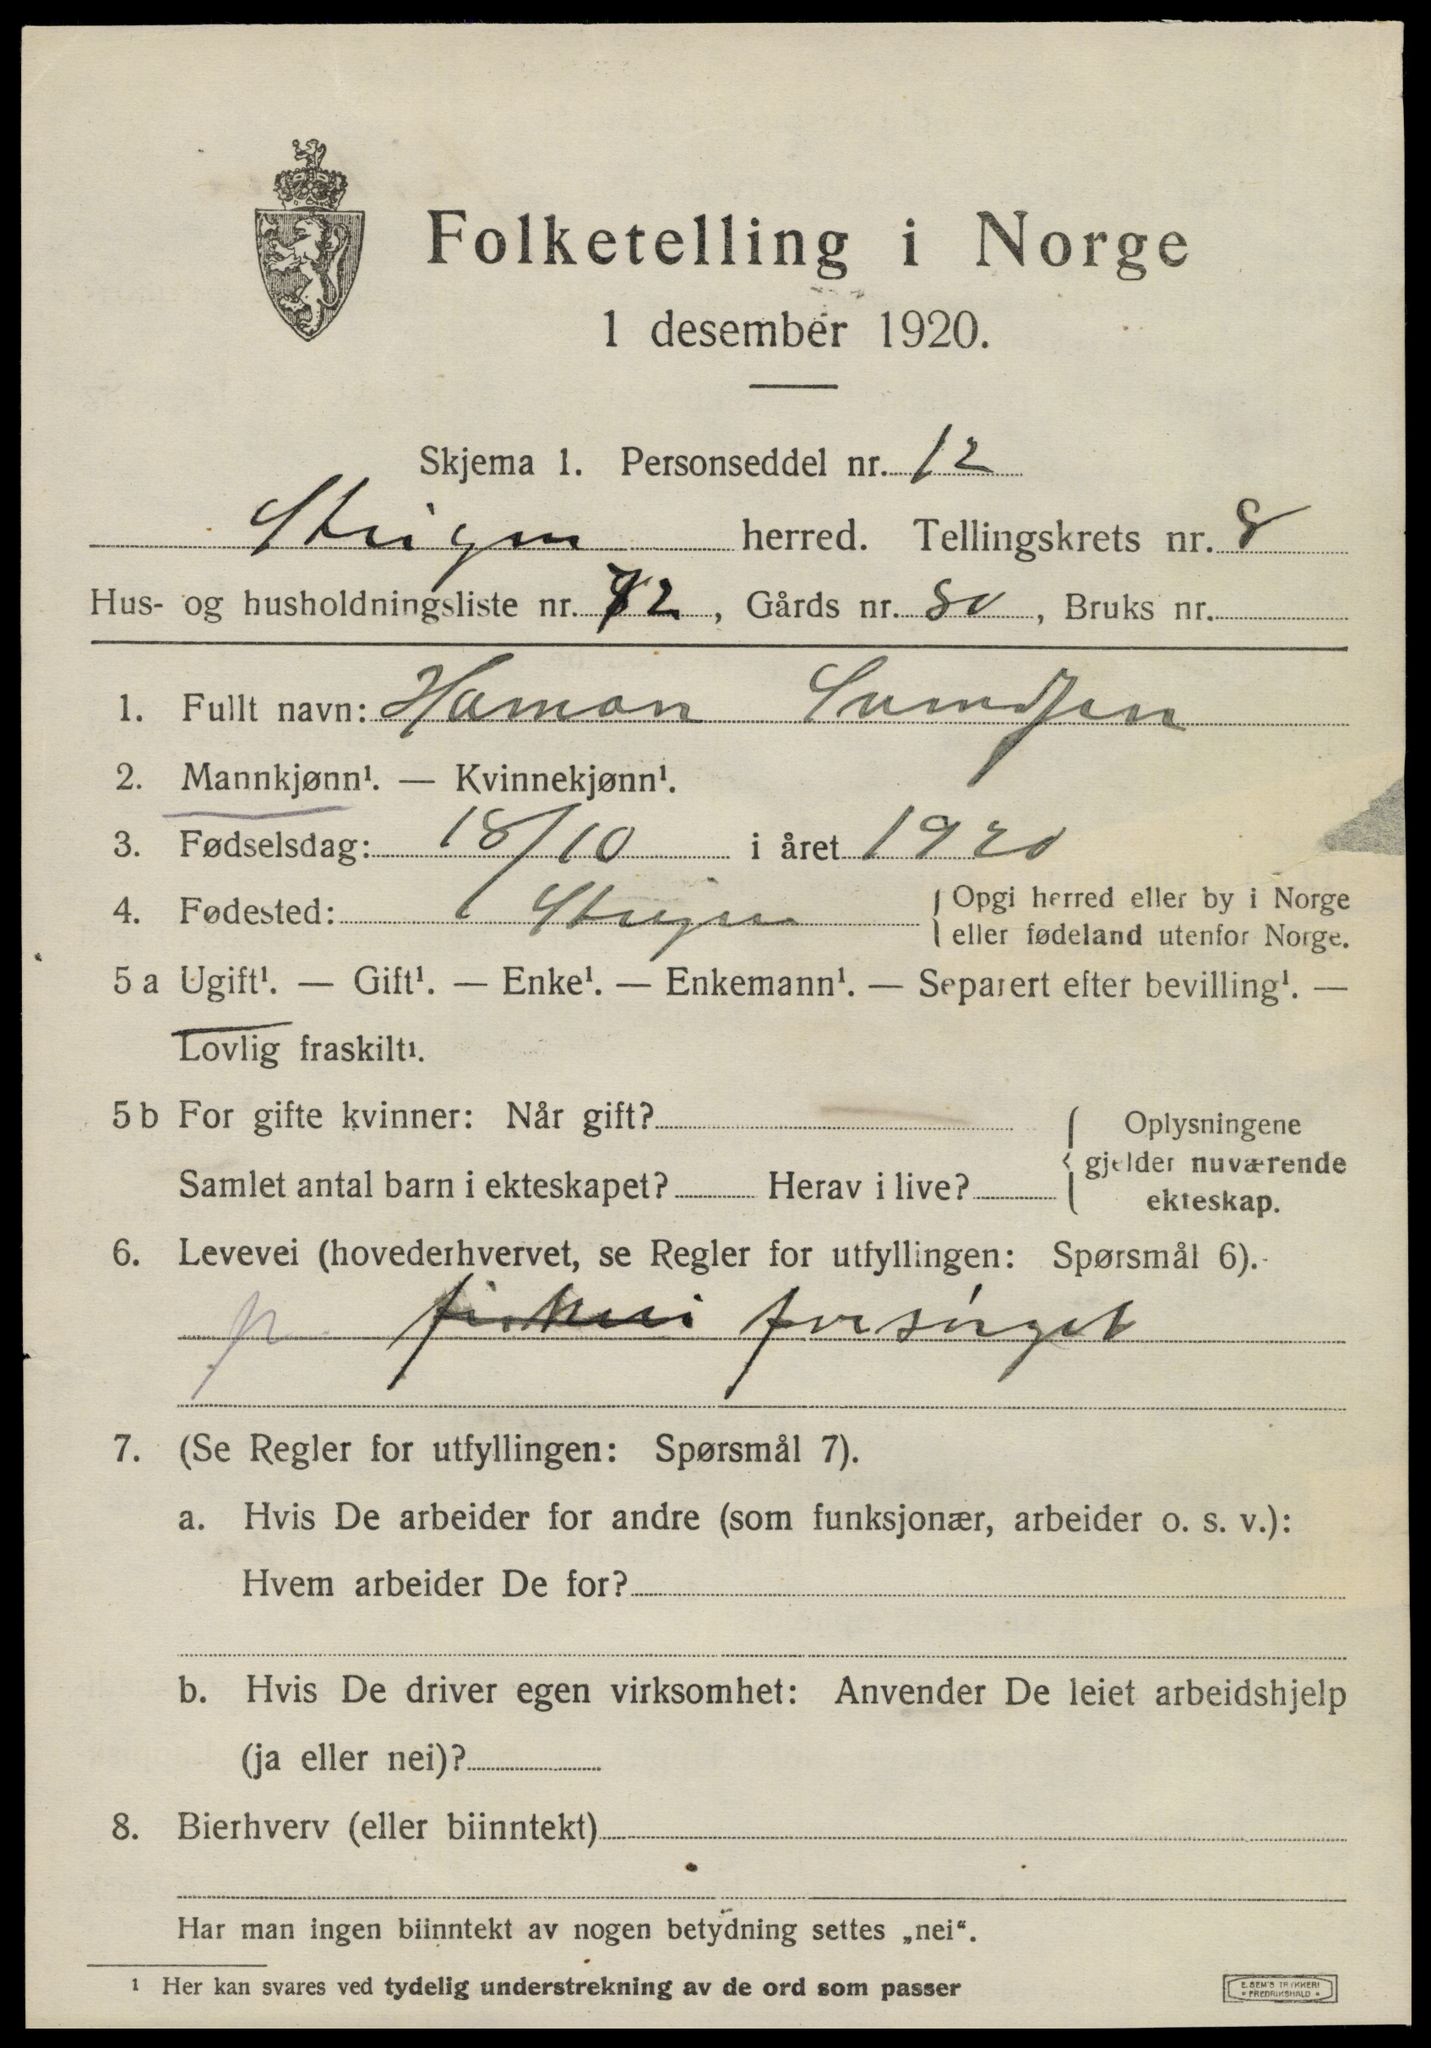 Folketelling i Norge
1 desember 1920.
Skjema 1. Personseddel nr. 12
herred. Tellingskrets nr. 8
Hus- og husholdningsliste nr. 72, Gårds nr. 80, Bruks nr.
1. Fullt navn: Haman
2. Mannkjønn¹. — Kvinnekjønn¹.
3. Fødselsdag: 18/10 i året 1920
4. Fødested: {Opgi herred eller by i Norge
eller fødeland utenfor Norge.
5 a Ugift¹. — Gift¹. — Enke¹. — Enkemann¹. — Separert efter bevilling¹. —
Lovlig fraskilt¹.
5 b For gifte kvinner: Når gift? {Oplysningene
gjelder nuværende
Samlet antal barn i ekteskapet? Herav i live? ekteskap.
6. Levevei (hovederhvervet, se Regler for utfyllingen: Spørsmål 6).
forsørget
7. (Se Regler for utfyllingen: Spørsmål 7).
a. Hvis De arbeider for andre (som funksjonær, arbeider o. s. v.):
Hvem arbeider De for?
b. Hvis De driver egen virksomhet: Anvender De leiet arbeidshjelp
(ja eller nei)?
8. Bierhverv (eller biinntekt)
Har man ingen biinntekt av nogen betydning settes „nei“.
¹ Her kan svares ved tydelig understrekning av de ord som passer
E. SEM'S TRYKKERI
FREDRIKSHALD